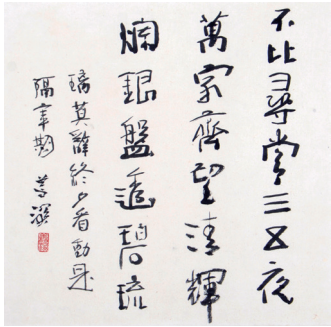 不比尋常三五夜
萬家齊望清輝
爛銀盤透碧琉
璃莫辭終夕看動是
隔年期